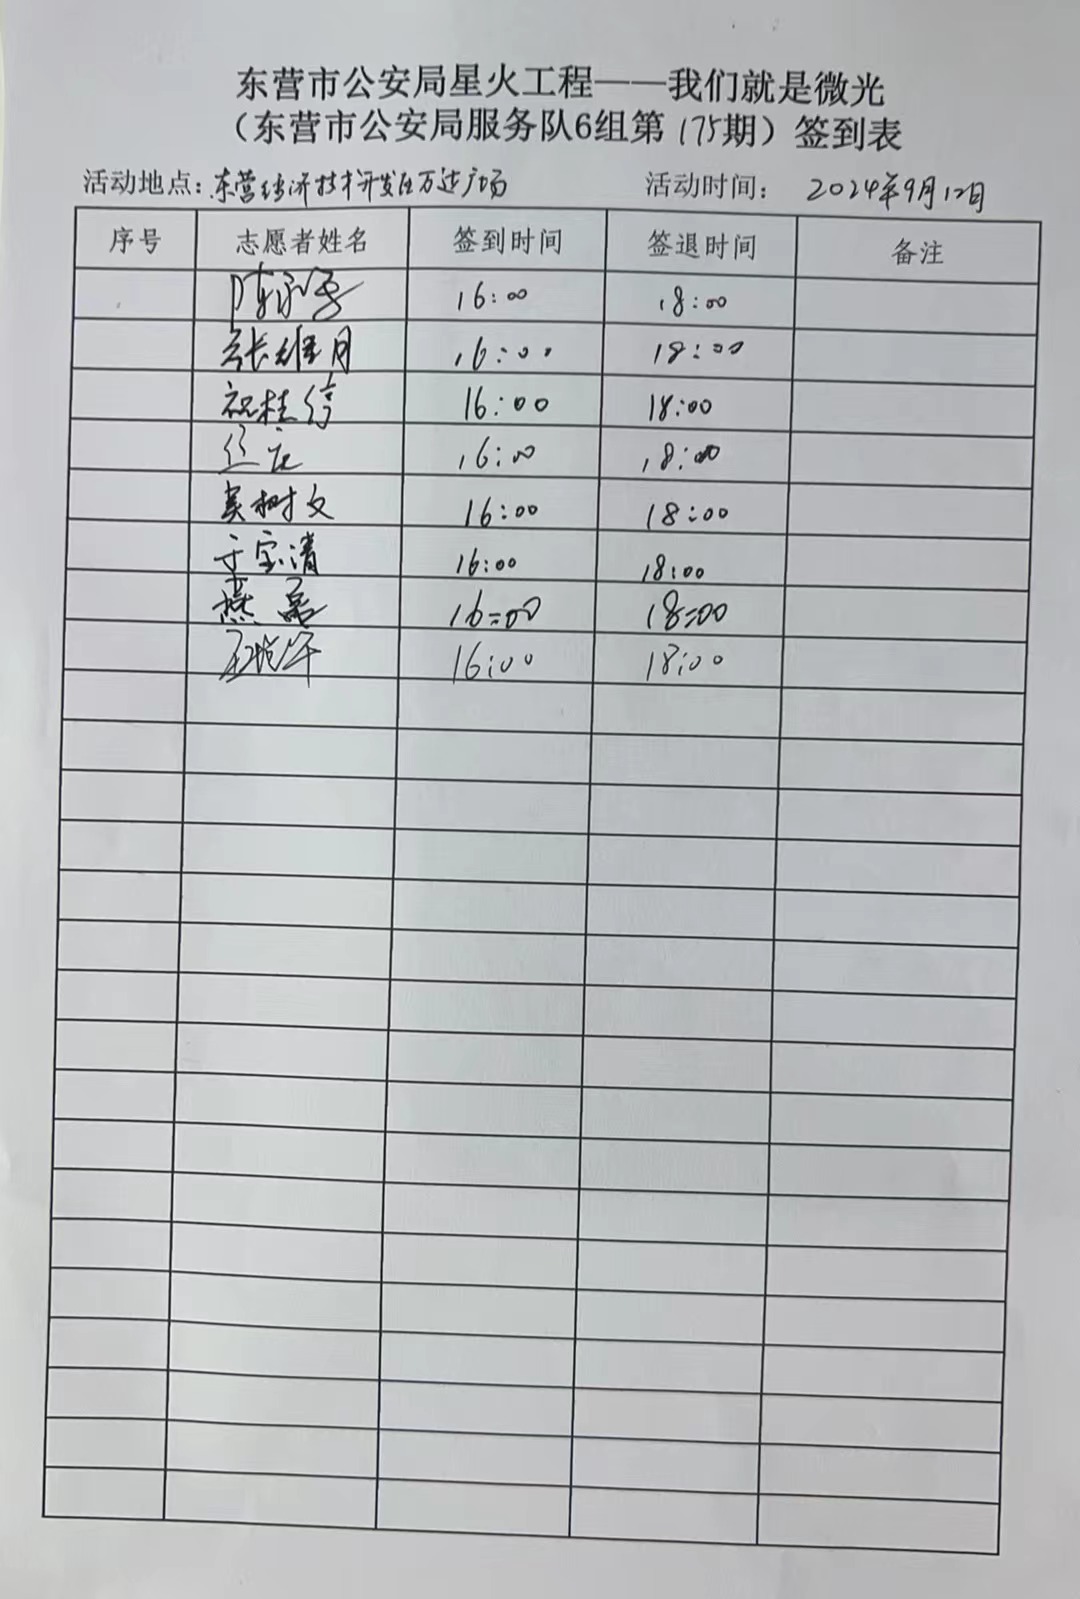 东营市公安局星火工程——我们就是微光
（东营市公安局服务队6组第175期）签到表
活动地点：东营经济技术开发区万达广场 活动时间： 2024年9月12日
序号 志愿者姓名 签到时间 签退时间 备注
16:00 18:00
张维月 16:00 18:00
祝桂停 16:00 18:00
16:00 18:00
树文 16:00 18:00
于宝清 16:00 18:00
燕磊 16=00 18=00
16:00 18:00